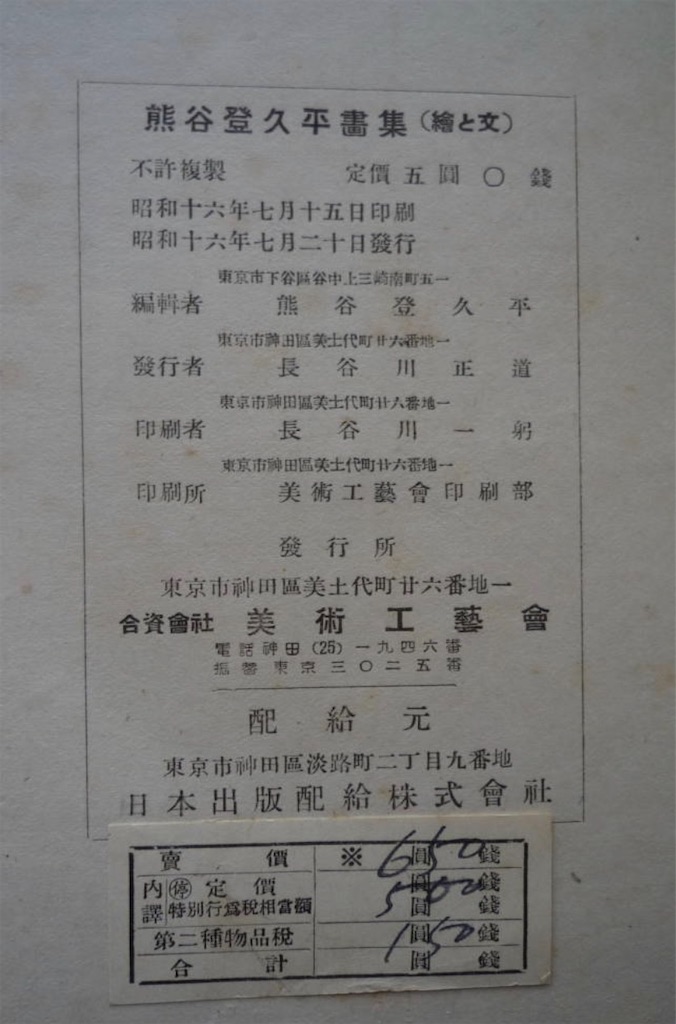 熊谷登久平畫集(繪と文)
不許複製 定價五圓〇錢
昭和十六年七月十五日印刷
昭和十六年七月二十日發行
東京市下谷區谷中上三崎南町五一
編輯者 熊谷登久平
東京市神田區美土代町廿六番地一
發行者 長谷川正道
東京市神田區美土代町廿六番地一
印刷者 長谷川一躬
東京市神田區美土代町廿六番地一
印刷所 美術工藝會印刷部
發行所
東京市神田區美土代町廿六番地一
合資會社 美術工藝會
電話神田(25)一九四六番
振替東京三〇二五番
配給元
東京市神田區淡路町二丁目九番地
日本出版配給株式會社
賣價 ※ 6圓50錢
內譯 停 定價 圓 錢
特別行爲稅相當額 5圓00錢
第二種物品稅 1圓50錢
合計 圓 錢